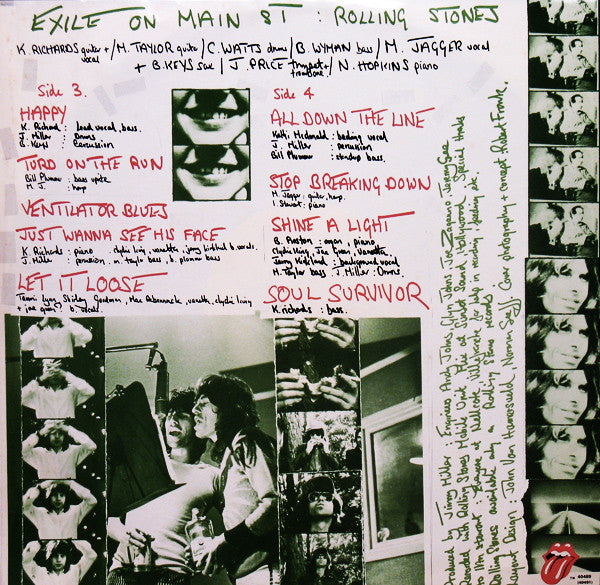 EXILE ON MAIN ST : ROLLING STONES
K. RICHARDS guiter + / M. TAYLOR guitar / C. WATTS drums / B. WYMAN bass / M. JAGGER vocal
vocal
+ B. KEYS sax / J. PRICE trumpet + / N. HOPKINS piano
trombone
Side 3.
HAPPY
K. Richard : lead vocal, bass.
J. Miller : Drums.
B. Keys : Percussion
TURD ON THE RUN
Bill Plummer : bass
M. J. : harp
VENTILATOR BLUES
JUST WANNA SEE HIS FACE
K. Richards : piano
J. Miller : percussion. m. taylor bass, b. plummer bass
LET IT LOOSE
Tammi Lynn, Shirley Goodman, Mac Rebennack,
Side 4
ALL DOWN THE LINE
Kathi Mcdonald : backing vocal
J. Miller : percussion
Bill Plummer : standup bass.
STOP BREAKING DOWN
M. Jagger guitar, harp.
I. Stewart : piano
SHINE A LIGHT
B. Preston : organ, piano
Clydie King, Joe Green, Vanetta,
Jerry Kirkland : background vocal
M. Taylor bass J. Miller : Drums.
SOUL SURVIVOR
K. richards : bass.
Produced by Jimmy Miller Engineers Andy Johns, Glyn Johns, Joe Zagarino, Jeremy Gee
Recorded with Rolling Stones Mobile Unit Plus at Sunset Sound, hollywood Special thanks
Rolling Stones available only on Rolling Stones records
Layout Design : John Van Hamersveld / Norman Seeff Cover photography + concept : Robert Frank.